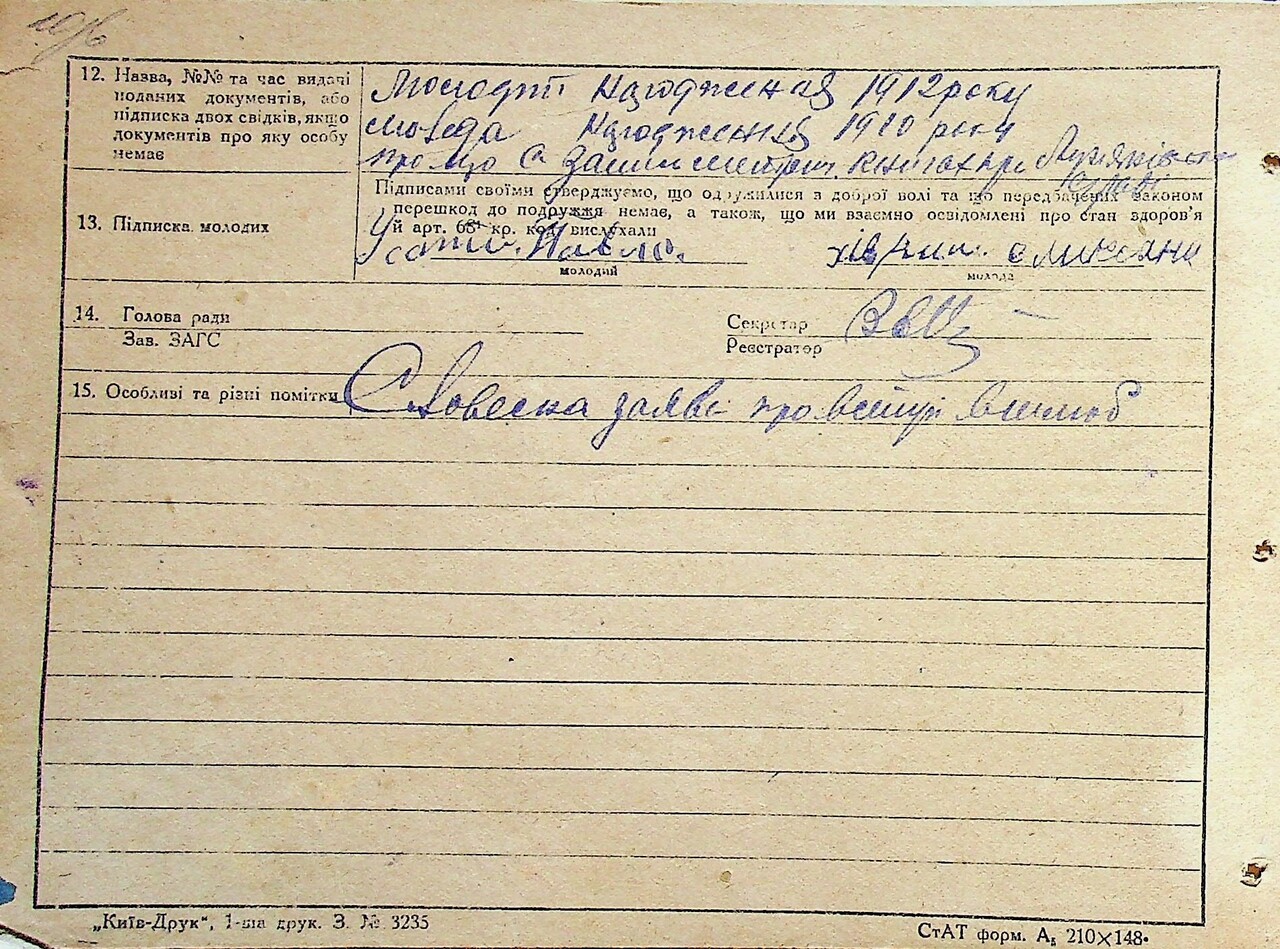 12. Назва, №№ та час видачі
поданих документів, або
підписка двох свідків, якщо
документів про яку особу
немає
Молодий Народження 1912 року
молода Народження 1910 року
про що Є записи метрич. книга при
Підписами своїми стверджуємо, що одружилися з доброї волі та що передбачених законом
перешкод до подружжя немає, а також, що ми взаємно освідомлені про стан здоров'я
й арт. 68¹ кр. код. вислухали
13. Підписка молодих
Павло.
молодий
молода
14. Голова ради
Зав. ЗАГС
Секретар
Реєстратор
15. Особливі та різні помітки
Словесна заява про вступ в шлюб
„Київ-Друк“, 1-ша друк. З. № 3235
СтАТ форм. А₅ 210×148.